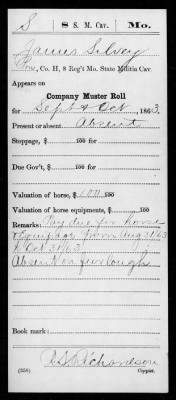 S | 8 S. M. Cav. | Mo.
James Silvey
Pvt., Co. H, 8 Reg't Mo. State Militia Cav.
Appears on
Company Muster Roll
for Sept & Oct, 1863.
Present or absent Absent
Stoppage, $ 100 for
Due Gov't, $ 100 for
Valuation of horse, $ 100 100
Valuation of horse equipments, $ 100
Remarks: Pay due for horse
from Aug 31/63
to Oct 31/63
Absent on furlough
Book mark:
R S Richardson
(356) Copyist.